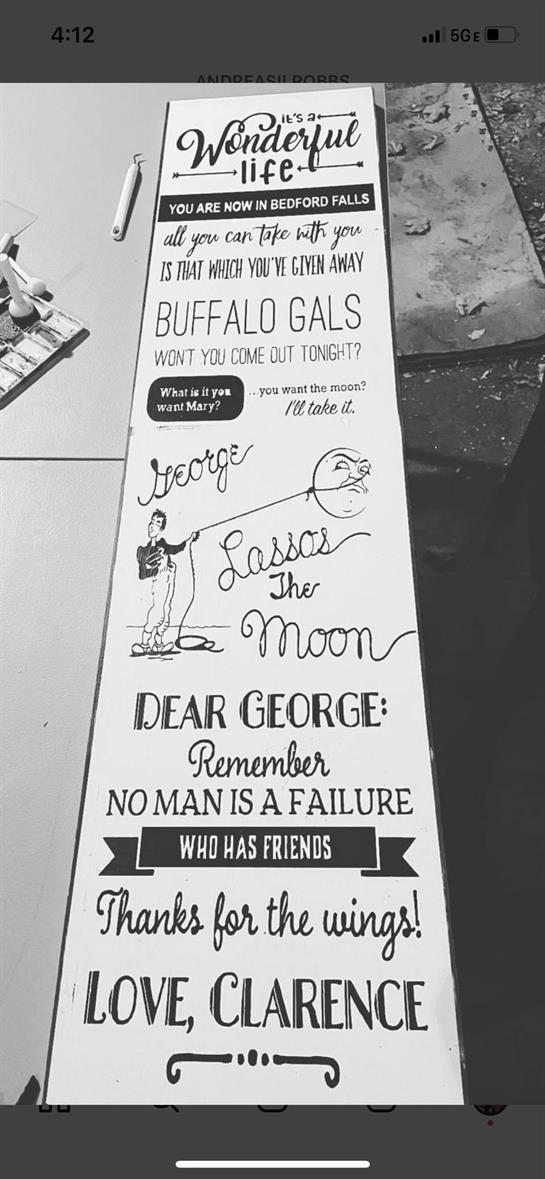 4:12
5GE
ANDREASILROBBS
it's a
Wonderful
life
YOU ARE NOW IN BEDFORD FALLS
all you can take with you
IS THAT WHICH YOU'VE GIVEN AWAY
BUFFALO GALS
WON'T YOU COME OUT TONIGHT?
What is it you
want Mary?
...you want the moon?
I'll take it.
George
Lassos
The
Moon
DEAR GEORGE:
Remember
NO MAN IS A FAILURE
WHO HAS FRIENDS
Thanks for the wings!
LOVE, CLARENCE